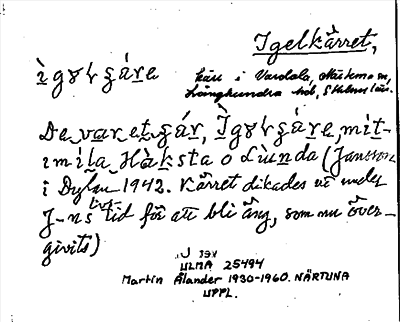 Igelkärret,
ìgơƖsáre
kärr i Vardala, Närkma m,
Långhundra hd, Sthlms län.
De va et sár, Ìgơ Ɩsáre, mit-
imila Håksta o Lùnda (Jansson
i Dylan 1942. Kärret dikades ut under
J-ns livstid för att bli äng, som nu över-
givits)
ULMA 25494
Martin Ålander 1930-1960. NÄRTUNA
UPPL.